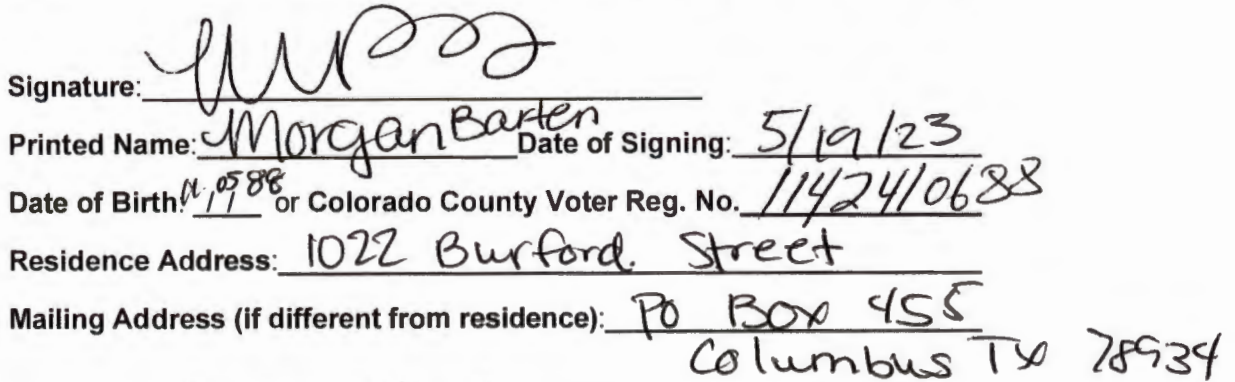 Signature:
Printed Name: Morgan Barten Date of Signing: 5/19/23
Date of Birth: or Colorado County Voter Reg. No. 1142410688
Residence Address: 1022 Burford. Street
Mailing Address (if different from residence): PO Box 455
Columbus TX 78934